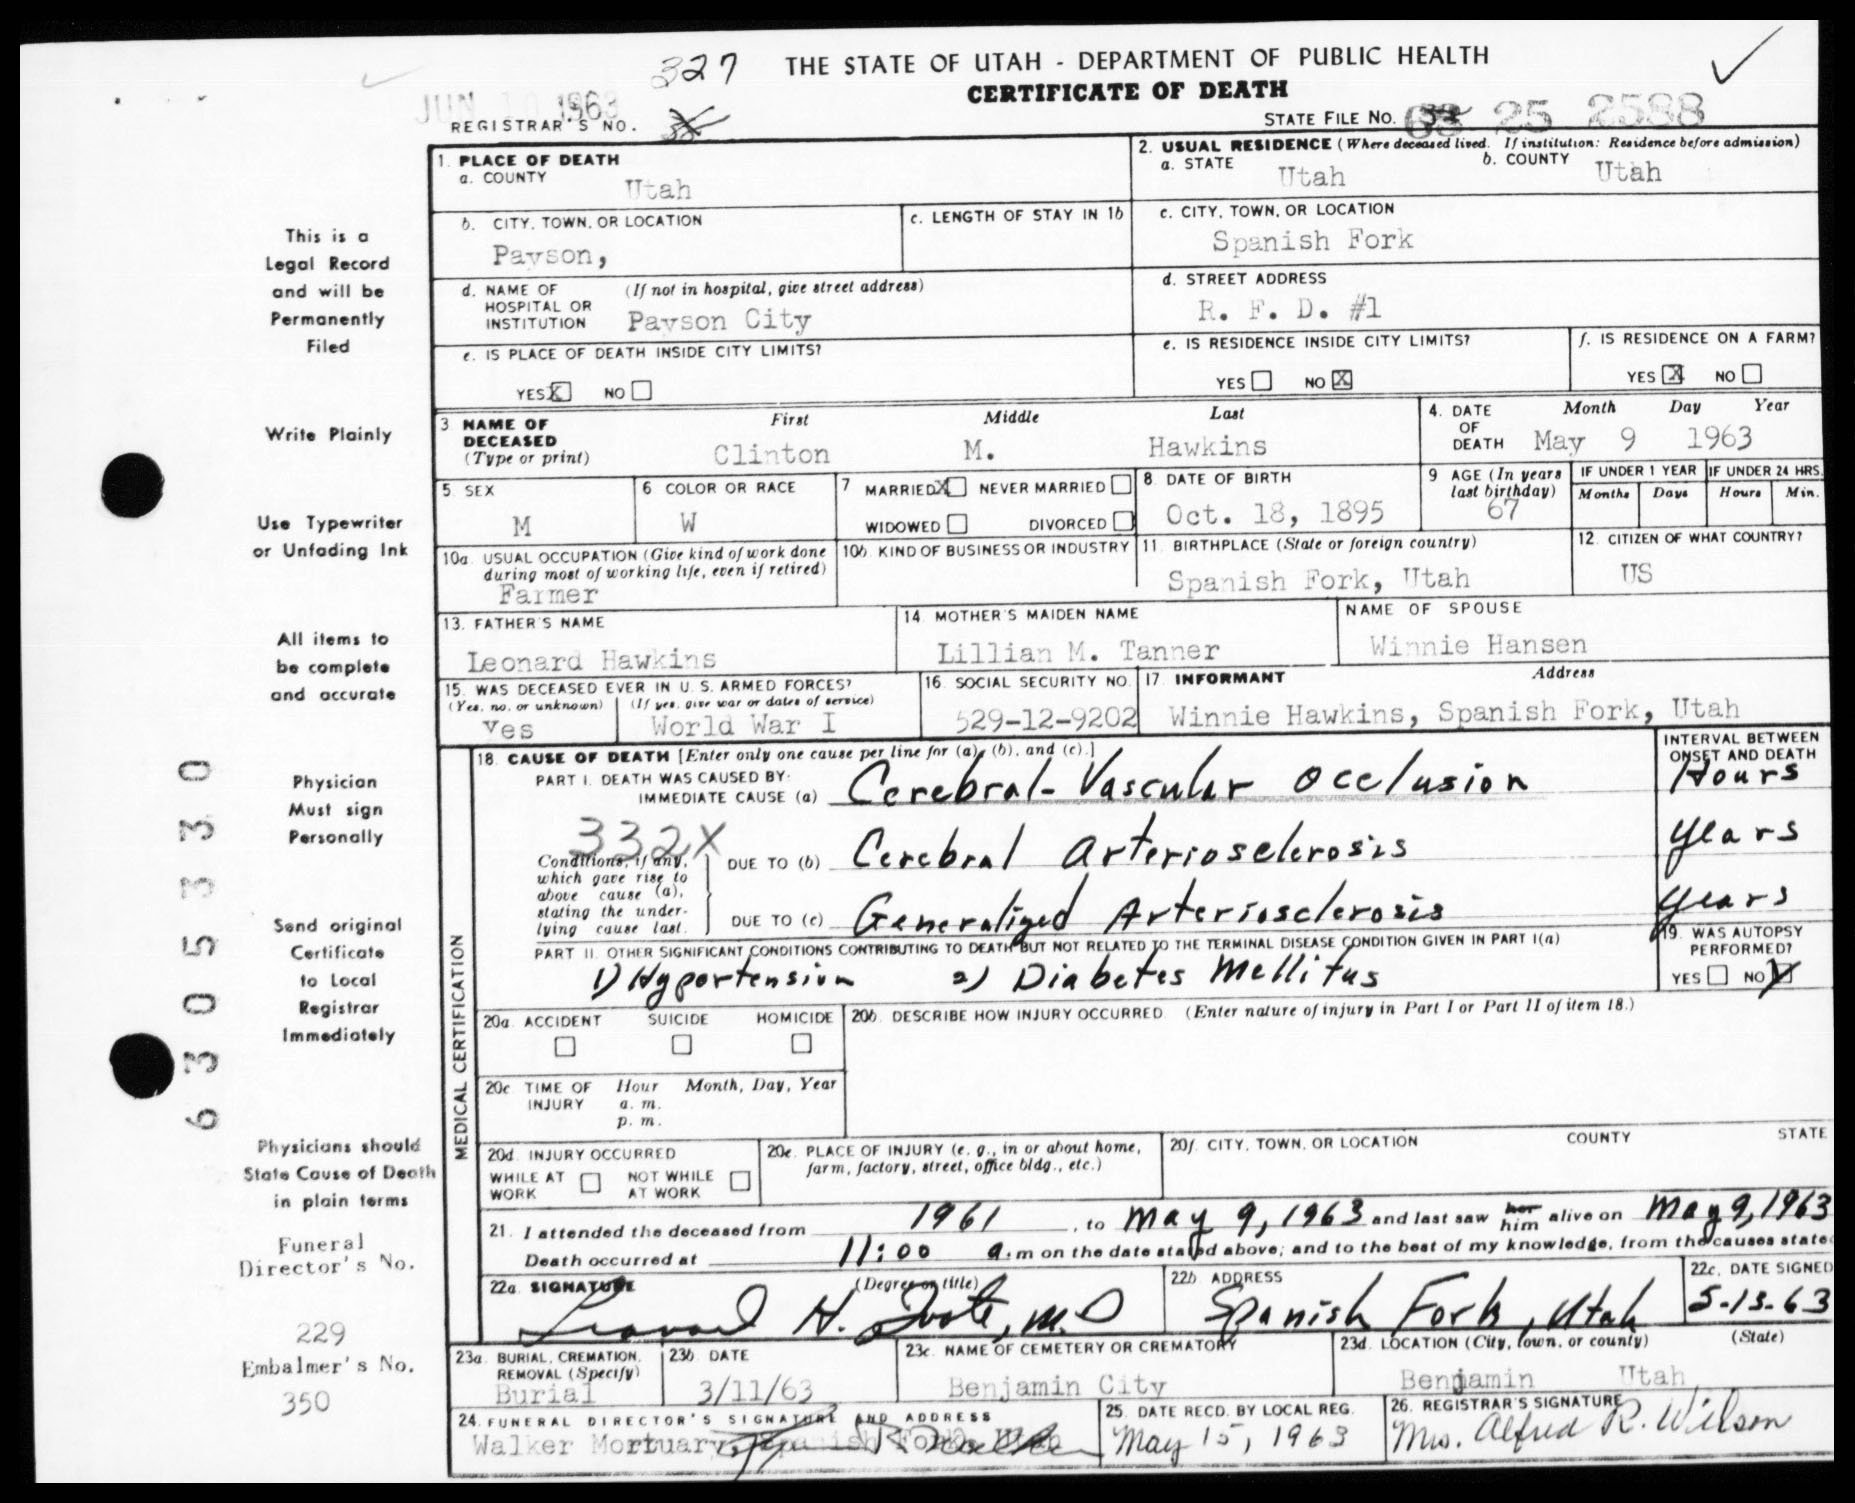 327
THE STATE OF UTAH - DEPARTMENT OF PUBLIC HEALTH
CERTIFICATE OF DEATH
JUN 10 1963
REGISTRAR'S NO.
STATE FILE NO. 63 25 2588
1. PLACE OF DEATH
a. COUNTY
Utah
2. USUAL RESIDENCE (Where deceased lived. If institution: Residence before admission)
a. STATE
Utah
b. COUNTY
Utah
b. CITY, TOWN, OR LOCATION
Payson,
c. LENGTH OF STAY IN 1b
c. CITY, TOWN, OR LOCATION
Spanish Fork
d. NAME OF HOSPITAL OR INSTITUTION
(If not in hospital, give street address)
Payson City
d. STREET ADDRESS
R. F. D. #1
e. IS PLACE OF DEATH INSIDE CITY LIMITS?
YES X NO
e. IS RESIDENCE INSIDE CITY LIMITS?
YES NO X
f. IS RESIDENCE ON A FARM?
YES X NO
3 NAME OF DECEASED (Type or print)
First Middle Last
Clinton M. Hawkins
4. DATE OF DEATH
Month Day Year
May 9 1963
5. SEX
M
6 COLOR OR RACE
W
7 MARRIED X NEVER MARRIED
WIDOWED DIVORCED
8. DATE OF BIRTH
Oct. 18, 1895
9 AGE (In years last birthday)
67
IF UNDER 1 YEAR
Months Days
IF UNDER 24 HRS.
Hours Min.
10a. USUAL OCCUPATION (Give kind of work done during most of working life, even if retired)
Farmer
10b. KIND OF BUSINESS OR INDUSTRY
11. BIRTHPLACE (State or foreign country)
Spanish Fork, Utah
12. CITIZEN OF WHAT COUNTRY?
US
13. FATHER'S NAME
Leonard Hawkins
14. MOTHER'S MAIDEN NAME
Lillian M. Tanner
NAME OF SPOUSE
Winnie Hansen
15. WAS DECEASED EVER IN U. S. ARMED FORCES?
(Yes, no, or unknown) (If yes, give war or dates of service)
Yes World War I
16. SOCIAL SECURITY NO.
529-12-9202
17. INFORMANT Address
Winnie Hawkins, Spanish Fork, Utah
MEDICAL CERTIFICATION
18. CAUSE OF DEATH [Enter only one cause per line for (a), (b), and (c).]
INTERVAL BETWEEN ONSET AND DEATH
PART I. DEATH WAS CAUSED BY:
IMMEDIATE CAUSE (a) Cerebral-Vascular Occlusion Hours
332X
Conditions, if any, which gave rise to above cause (a), stating the underlying cause last.
DUE TO (b) Cerebral Arteriosclerosis years
DUE TO (c) Generalized Arteriosclerosis years
PART II. OTHER SIGNIFICANT CONDITIONS CONTRIBUTING TO DEATH BUT NOT RELATED TO THE TERMINAL DISEASE CONDITION GIVEN IN PART I(a)
1) Hypertension 2) Diabetes Mellitus
19. WAS AUTOPSY PERFORMED?
YES NO X
20a. ACCIDENT SUICIDE HOMICIDE
20b. DESCRIBE HOW INJURY OCCURRED. (Enter nature of injury in Part I or Part II of item 18.)
20c. TIME OF INJURY Hour Month, Day, Year
a. m.
p. m.
20d. INJURY OCCURRED
WHILE AT WORK NOT WHILE AT WORK
20e. PLACE OF INJURY (e. g., in or about home, farm, factory, street, office bldg., etc.)
20f. CITY, TOWN, OR LOCATION COUNTY STATE
21. I attended the deceased from 1961, to May 9, 1963 and last saw her him alive on May 9, 1963
Death occurred at 11:00 a.m on the date stated above; and to the best of my knowledge, from the causes state
22a. SIGNATURE (Degree or title)
H. M.D
22b. ADDRESS
Spanish Fork, Utah
22c. DATE SIGNED
5-13-63
23a. BURIAL, CREMATION, REMOVAL (Specify)
Burial
23b. DATE
3/11/63
23c. NAME OF CEMETERY OR CREMATORY
Benjamin City
23d. LOCATION (City, town, or county) (State)
Benjamin Utah
24. FUNERAL DIRECTOR'S SIGNATURE AND ADDRESS
Walker Mortuary, Spanish Fork, Utah
25. DATE RECD. BY LOCAL REG.
May 15, 1963
26. REGISTRAR'S SIGNATURE
Mrs. Alfred R. Wilson
This is a
Legal Record
and will be
Permanently
Filed
Write Plainly
Use Typewriter
or Unfading Ink
All items to
be complete
and accurate
Physician
Must sign
Personally
Send original
Certificate
to Local
Registrar
Immediately
Physicians should
State Cause of Death
in plain terms
Funeral
Director's No.
229
Embalmer's No.
350
6 3 0 5 3 3 0